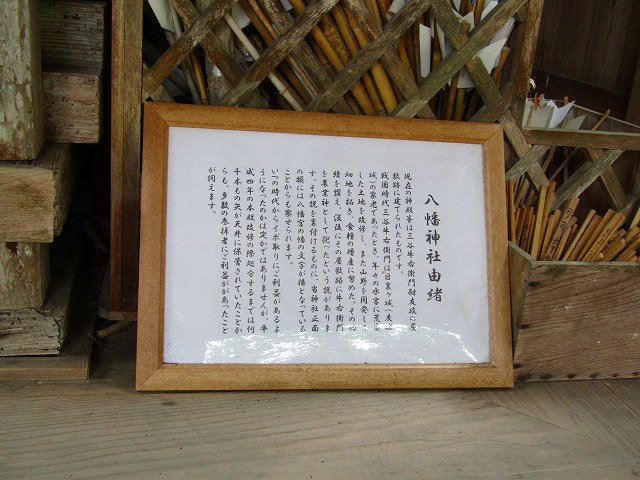 八幡神社由緒
現在の神殿等は三谷牛右衛門尉友政の屋
敷跡に建てられたものです。
戦国時代三谷牛右衛門は目裏ヶ城(友政
城)の家老であったとき、年々の水害に荒
した土地を改修し、また山野を開発して
畑地を拓き、食糧の増産に努めた。その功
績を讃え、没後にその屋敷跡に牛右衛門
を農業神として祀ったという説がありま
す。その説を裏付けるものに、当神社正面
の額には八幡宮の幡の文字が播となっている
ことからも察せられます。
いつの時代からイボ取りにご利益があるよ
うになったのかは定かではありませんが、平
成四年の本殿改修の際処分するまでは何
千本もの矢が天井に保管されていたことか
らも、多数の参拝者にご利益があったこと
が伺えます。